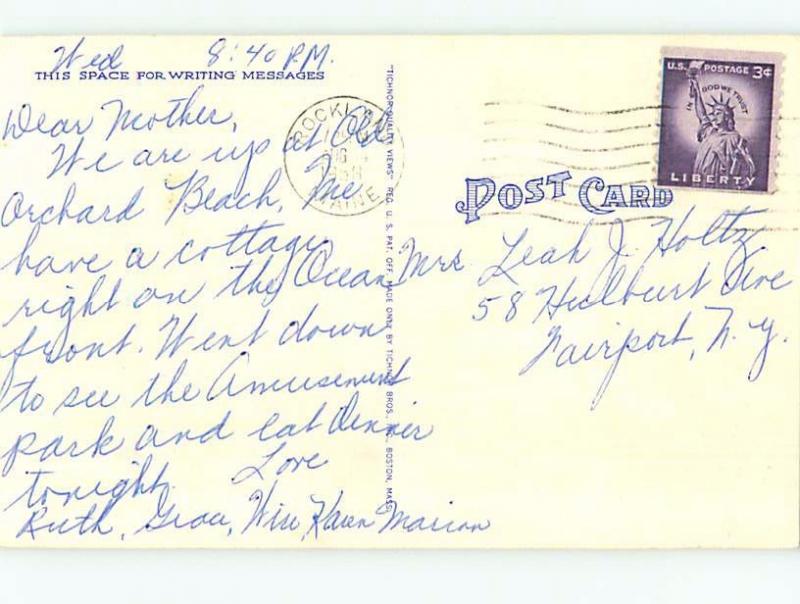 Wed 8:40 P.M.
THIS SPACE FOR WRITING MESSAGES
Dear Mother,
We are up at Old
Orchard Beach, Me.
have a cottage
right on the Ocean
front. Went down
to see the Amusement
park and eat Dinner
tonight. Love
Ruth, Karen Marion
"TICHNOR QUALITY VIEWS" REG. U. S. PAT. OFF. MADE ONLY BY TICHNOR BROS., INC., BOSTON, MASS.
MAINE
U.S. POSTAGE 3¢
IN GOD WE TRUST
LIBERTY
POST CARD
Mrs Leah J. Holtz
58 Hulburt Ave
Fairport, N.Y.